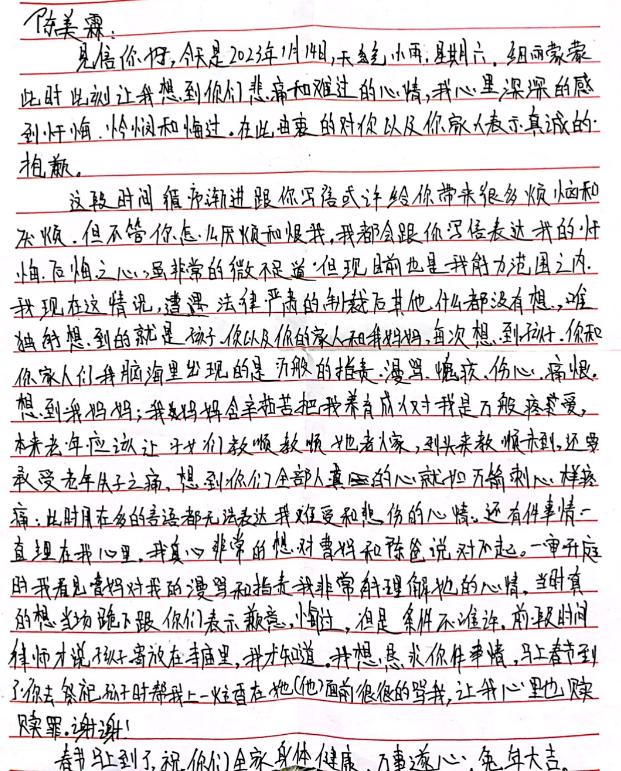 陈美霖:
见信你好,今天是2023年1月14日,天气小雨.星期六.细雨蒙蒙
此时此刻让我想到你们悲痛和难过的心情,我心里深深的感
到忏悔.怜悯和悔过.在此由衷的对你以及你家人表示真诚的
抱歉。
这段时间循序渐进跟你写信或许给你带来很多烦恼和
厌烦.但不管你怎么厌烦和恨我,我都会跟你写信表达我的忏
悔.后悔之心,虽非常的微不足道.但现目前也是我能力范围之内.
我现在这情况,遭遇法律严肃的制裁后其他什么都没有想.,唯
独能想到的就是孩子.你以及你的家人和我妈妈,每次想到孩子.你和
你家人们我脑海里出现的是万般的指责.漫骂.愤 .伤心.痛恨.
想到我妈妈;我妈妈含辛茹苦把我养育成人对我是万般疼爱,
本来老年应该让子女们教顺教顺她老人家,到头来教顺未到,还要
承受老年失子之痛.想到你们全部人 的心就如万箭刺心一样疼
痛.此时用在多的言语都无法表达我难受和悲伤的心情。还有件事情一
直埋在我心里,我真心非常的想对曹妈和陈爸说对不起。一审开庭
时我看见曹妈对我的漫骂和指责我非常能理解她的心情,当时真
的想当场跪下跟你们表示歉意,悔过,但是条件不准许.前段时间
律师才说孩子寄放在寺庙里,我才知道.我想恳求你件事情,马上春节到
了你去祭祀孩子时帮我上一炷香在她(他)面前狠狠的骂我,让我心里也赎
赎罪.谢谢!
春节马上到了,祝你们全家身体健康、万事遂心、兔年大吉。